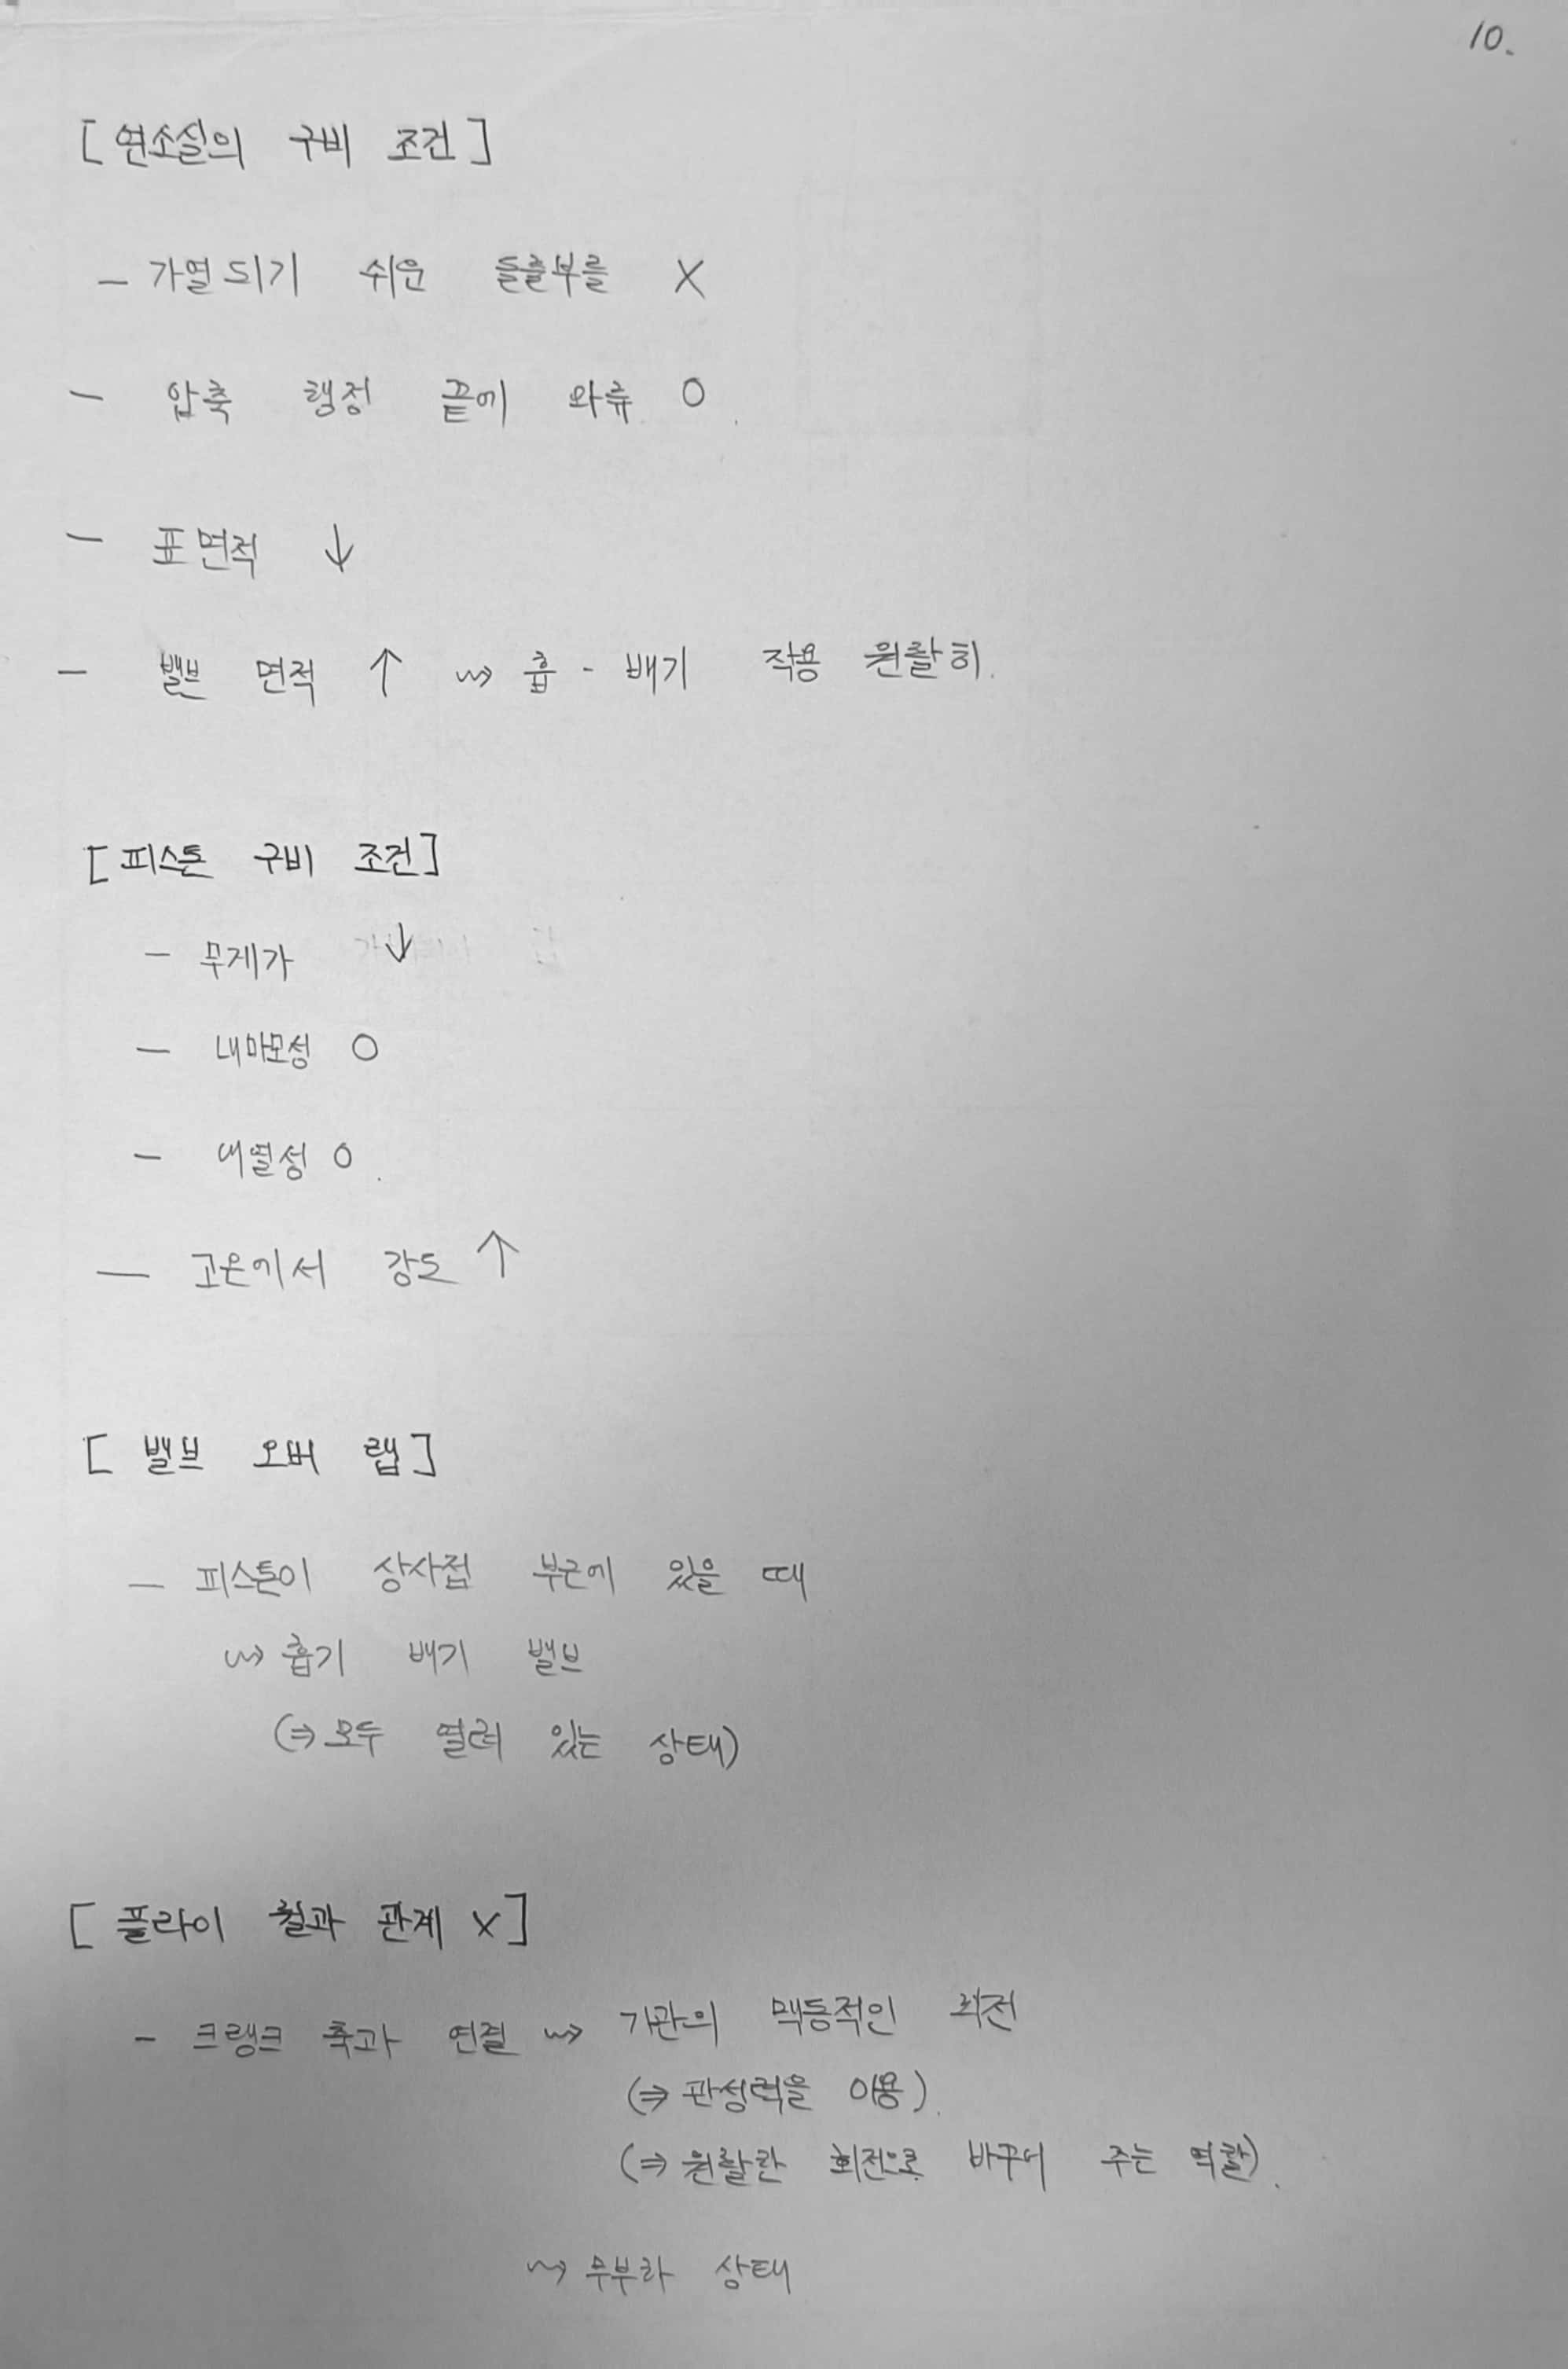 10.
[연소실의 구비 조건]
- 가열되기 쉬운 돌출부를 X
- 압축 행정 끝에 와류 O.
- 표면적 ↓
- 밸브 면적 ↑ ⇝ 흡 - 배기 작용 원활히.
[피스톤 구비 조건]
- 무게가 ↓
- 내마모성 O
- 내열성 O.
- 고온에서 강도 ↑
[밸브 오버 랩]
- 피스톤이 상사점 부근에 있을 때
⇝ 흡기 배기 밸브
(⇒ 모두 열려 있는 상태)
[플라이 휠과 관계 X]
- 크랭크 축과 연결 ⇝ 기관의 맥동적인 회전
(⇒ 관성력을 이용).
(⇒ 원활한 회전으로 바꾸어 주는 역할).
⇝ 무부하 상태